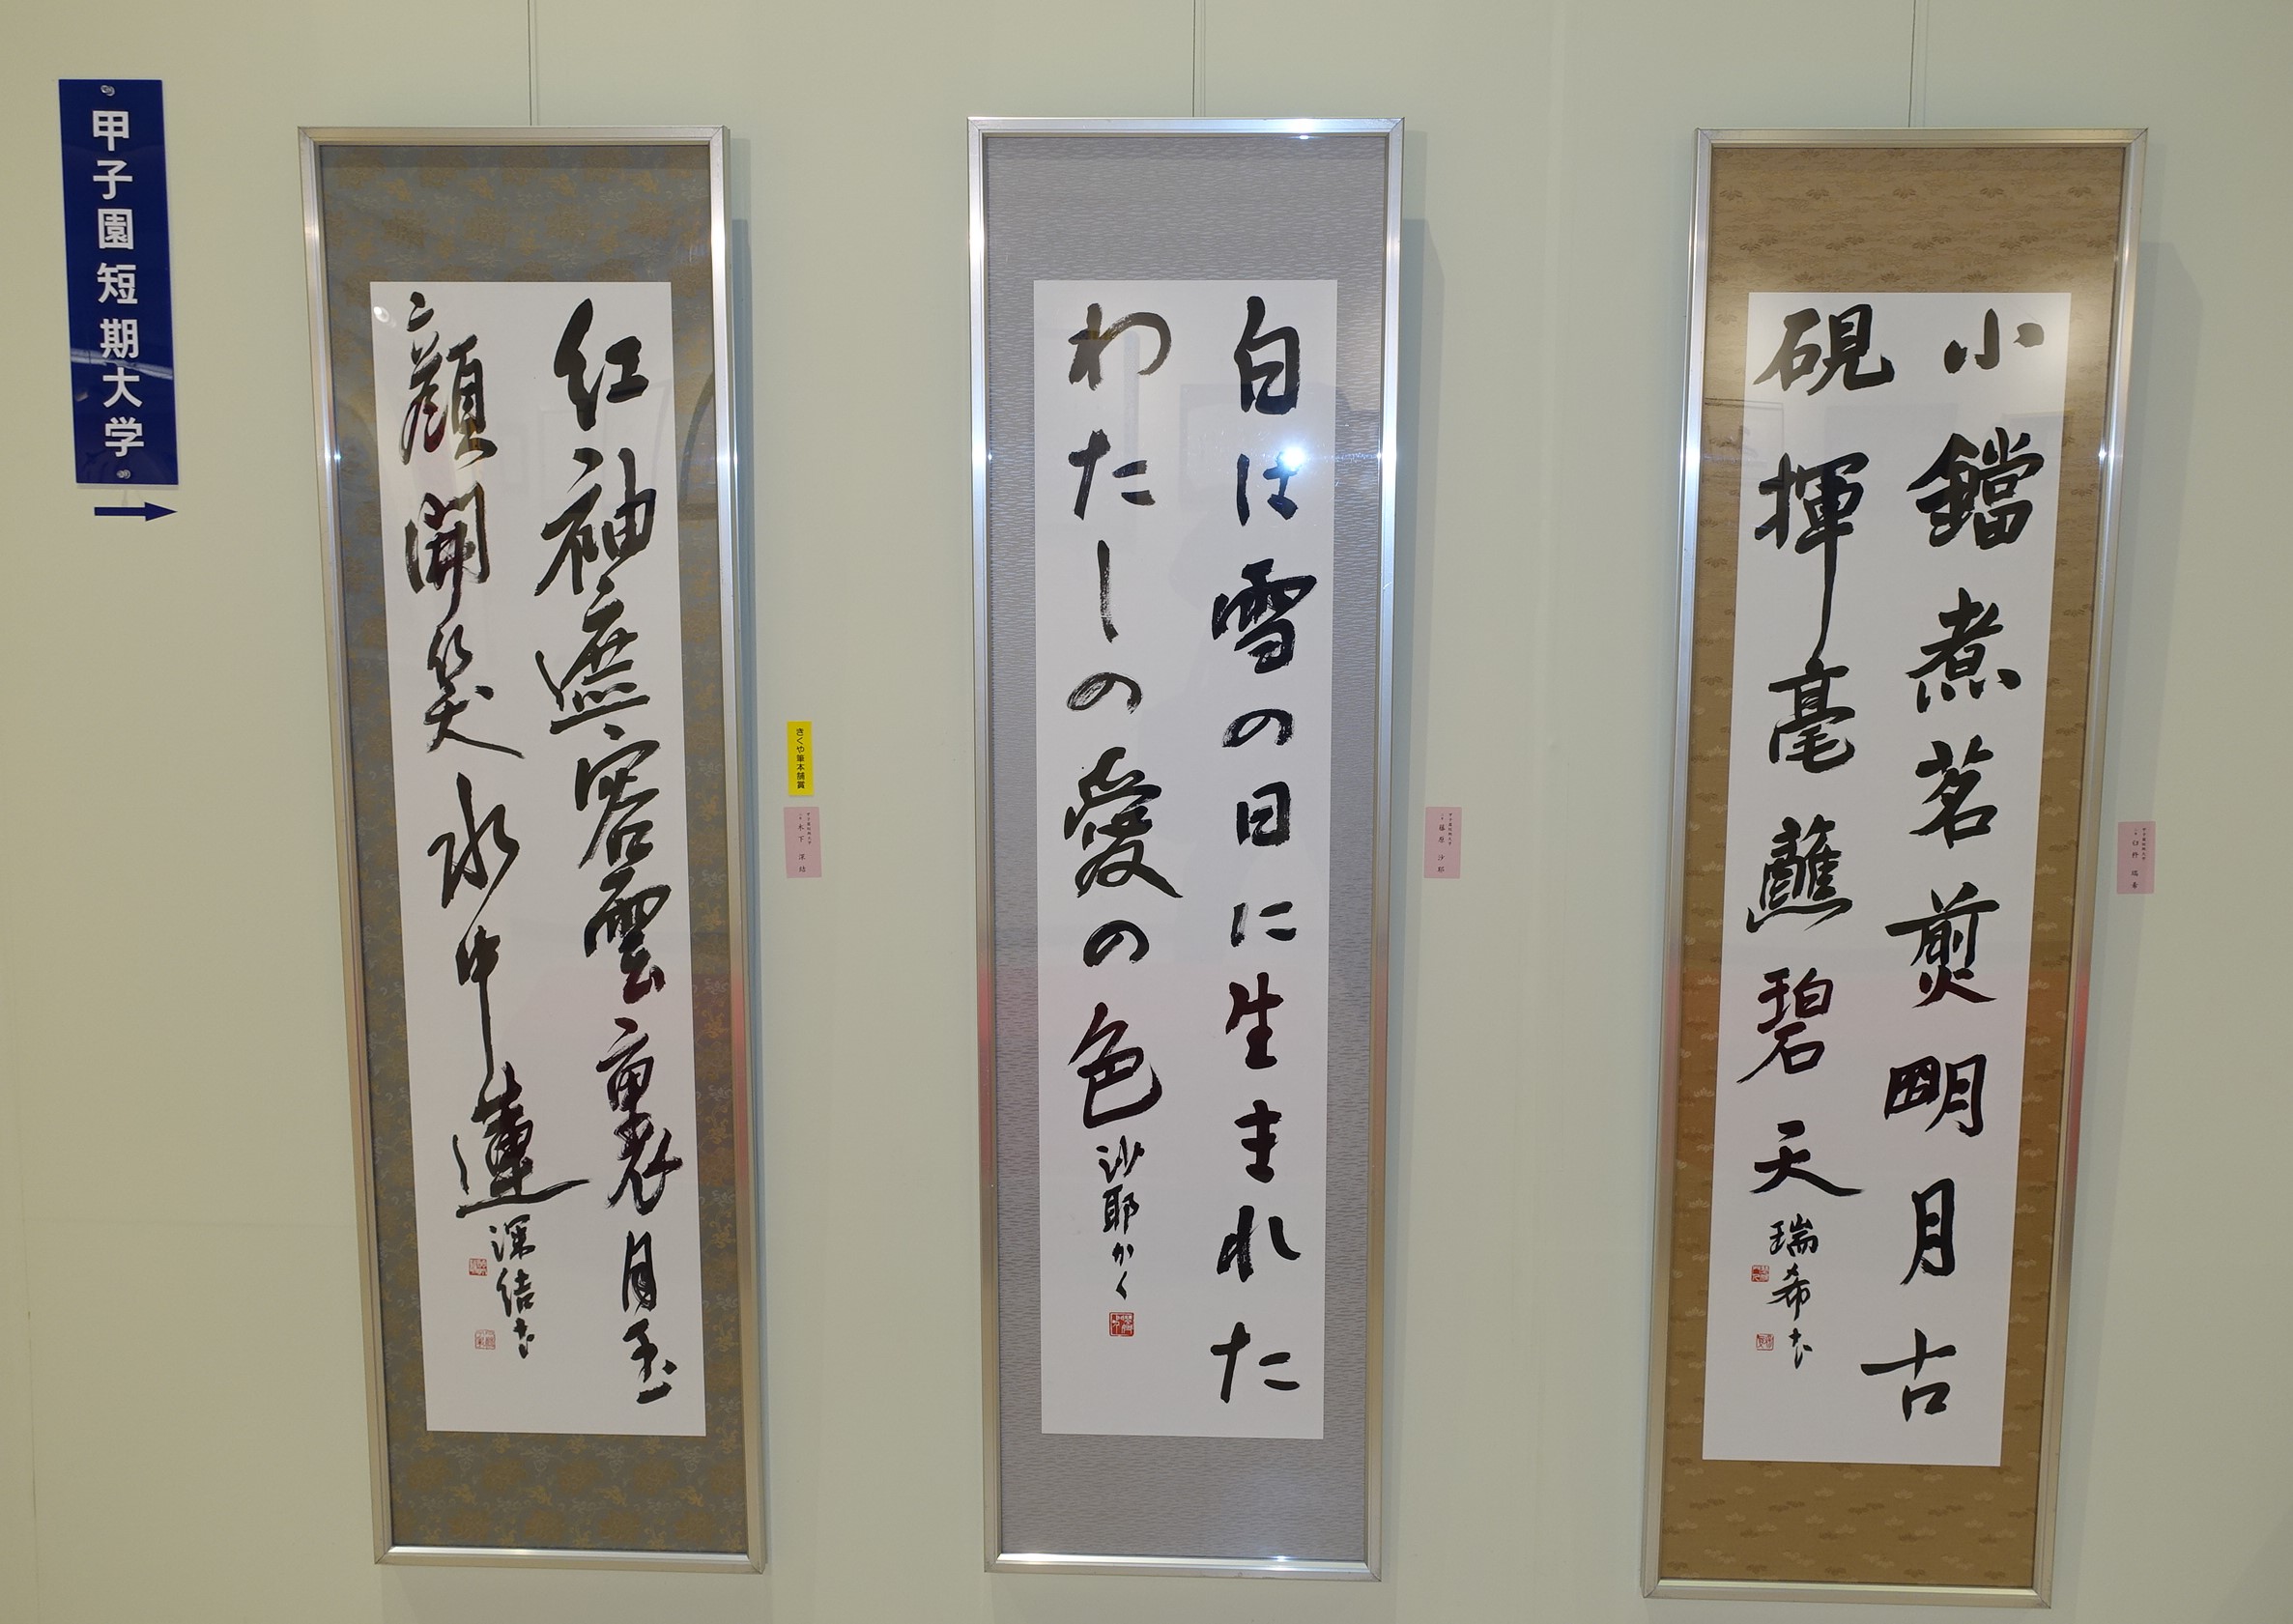 甲子園短期大学
紅袖遮容雲裏月玉
顔開笑水中蓮
深結書
きくや筆本舗賞
木下 深結
白は雪の日に生まれた
わたしの愛の色
沙耶かく
藤原 沙耶
小鐺煮茗煎明月古
硯揮毫蘸碧天
瑞希書
臼杵 瑞希